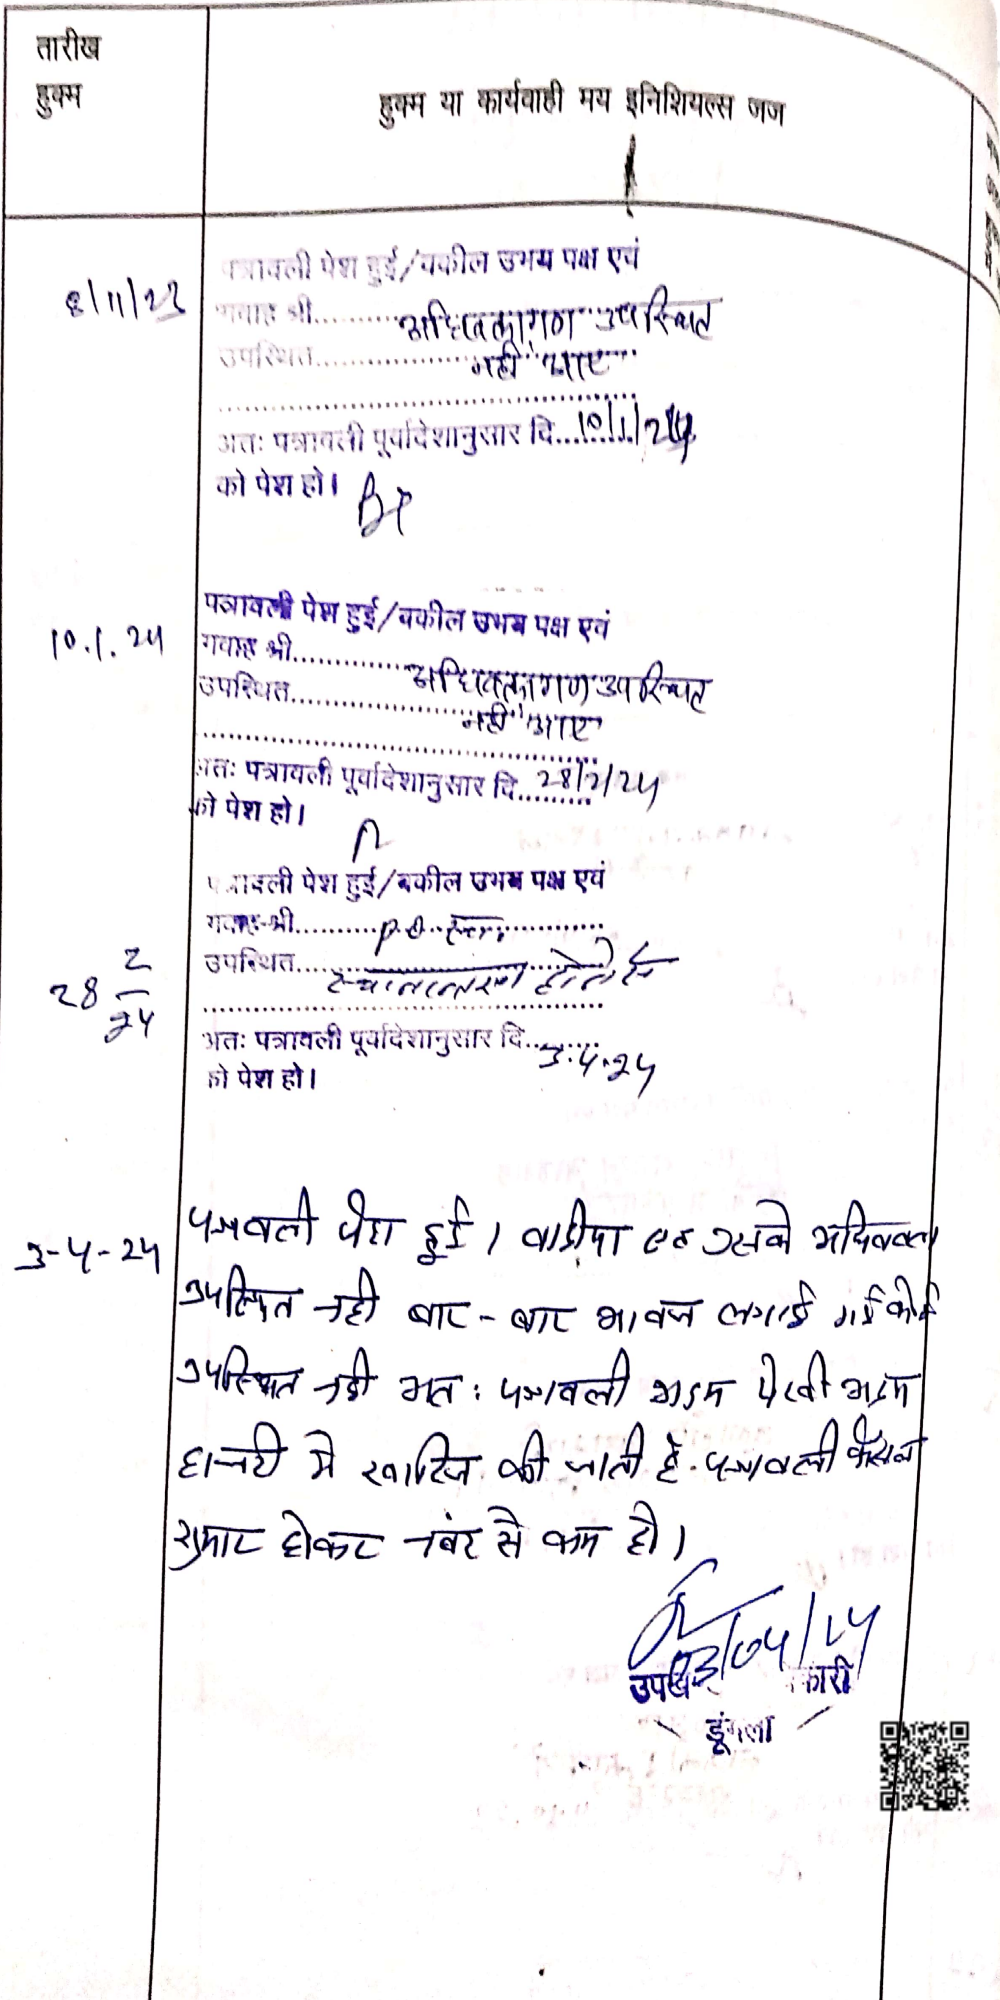 तारीख
हुक्म
हुक्म या कार्यवाही मय इनिशियल्स जज
8/11/23
पत्रावली पेश हुई/वकील उभय पक्ष एवं
गवाह श्री.......... अधिवक्तागण उपस्थित
उपस्थित.......... नहीं आए
अतः पत्रावली पूर्वादेशानुसार दि....10/1/24
को पेश हो।
10.1.24
पत्रावली पेश हुई/वकील उभय पक्ष एवं
गवाह श्री.......... अधिवक्तागण उपस्थित
उपस्थित.......... नहीं आए
अतः पत्रावली पूर्वादेशानुसार दि....28/2/24
को पेश हो।
पत्रावली पेश हुई/वकील उभय पक्ष एवं
गवाह श्री.......... P.O.
28 2/24
उपस्थित.......... स्थानान्तरण होने से
अतः पत्रावली पूर्वादेशानुसार दि....3.4.24
को पेश हो।
3-4-24
पत्रावली पेश हुई। वादीया एवं उसके अधिवक्ता
उपस्थित नहीं बार-बार आवाज लगाई गई कोई
उपस्थित नहीं अतः पत्रावली अदम पैरवी अदम
हाजरी में खारिज की जाती है. पत्रावली फैसल
शुमार होकर नंबर से कम हो।
03/04/24
उपखण्ड अधिकारी
डूंगला